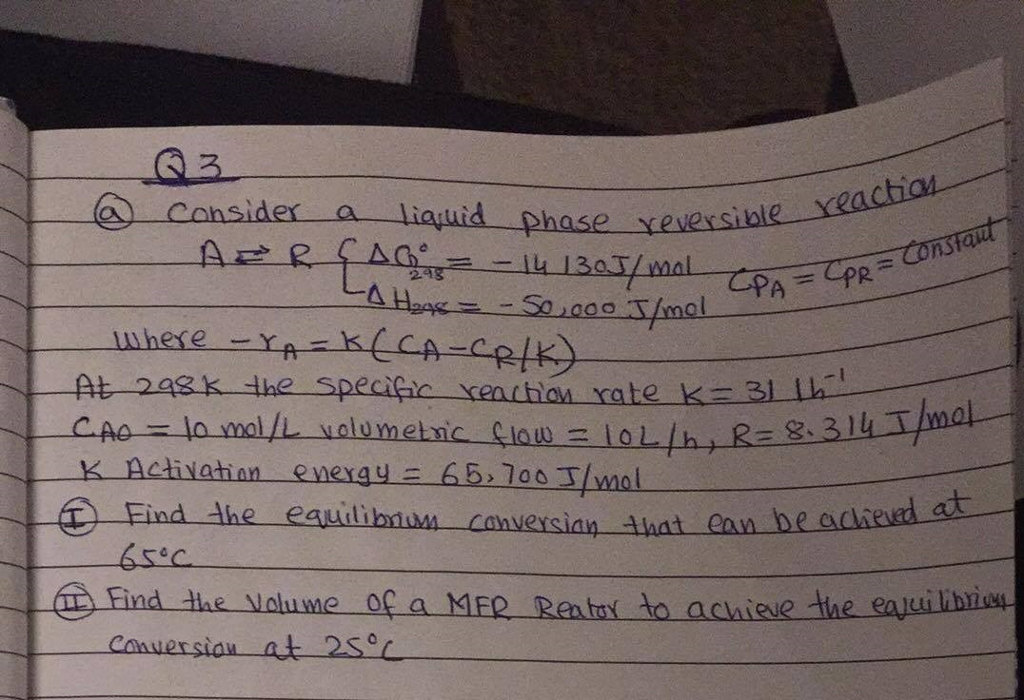 Q3
(a) Consider a liquid phase reversible reaction
A ⇌ R { ΔG°298 = -14130J/mol
ΔH298 = -50,000 J/mol CPA = CPR = Constant
where -rA = K(CA-CR/K)
At 298K the specific reaction rate K = 31 h-1
CAO = 10 mol/L volumetric flow = 10L/h, R = 8.314 J/mol
K Activation energy = 65,700 J/mol
(I) Find the equilibrium conversion that can be achieved at
65°C
(II) Find the volume of a MFR Reator to achieve the equilibrium
conversion at 25°C